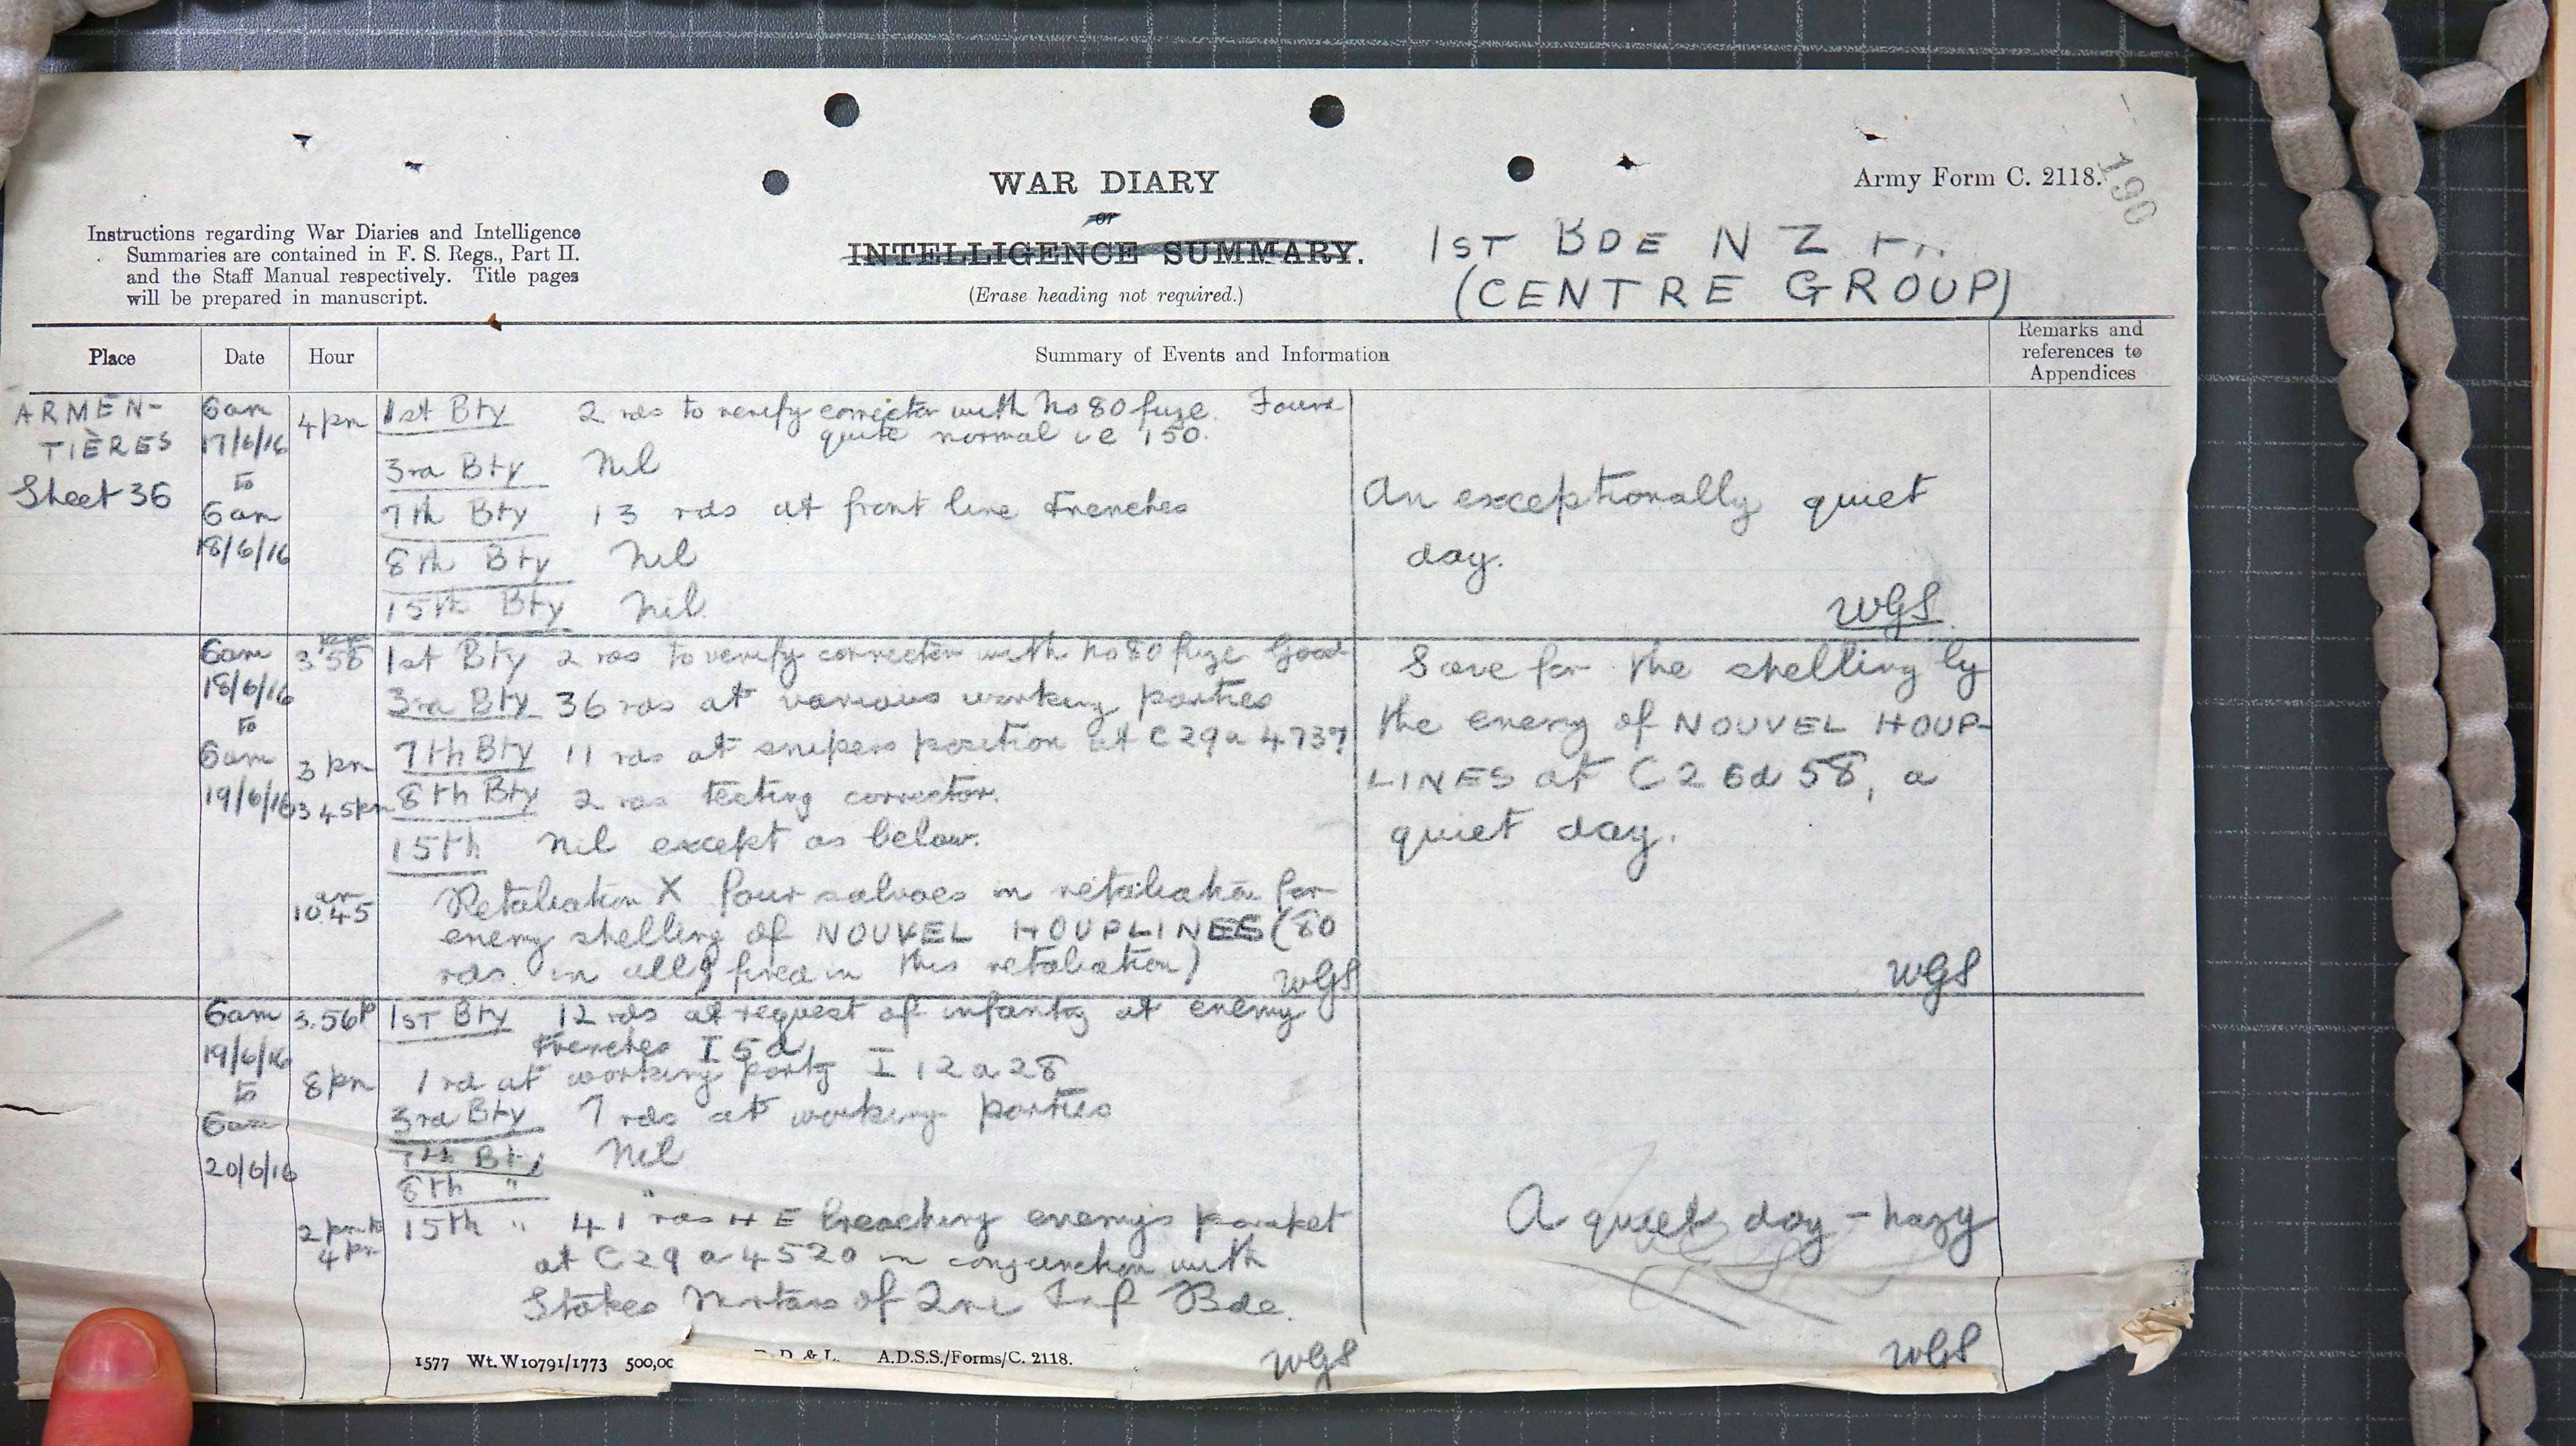 190
Army Form C. 2118.
WAR DIARY
or
INTELLIGENCE SUMMARY.
(Erase heading not required.)
Instructions regarding War Diaries and Intelligence
Summaries are contained in F. S. Regs., Part II.
and the Staff Manual respectively. Title pages
will be prepared in manuscript.
1ST BDE N Z
(CENTRE GROUP)
Place Date Hour Summary of Events and Information Remarks and references to Appendices
ARMEN-
TIÈRES
Sheet 36
6am
17/6/16
to
6am
18/6/16
4pm 1st Bty 2 rds to verify corrector with No 80 fuze. Found
quite normal ie 150.
3rd Bty Nil
7th Bty 13 rds at front line trenches
8th Bty Nil
15th Bty Nil.
An exceptionally quiet
day.
WGS.
6am
18/6/16
to
6am
19/6/16
3.58 1st Bty 2 rds to verify corrector with No 80 fuze Good
3rd Bty 36 rds at various working parties
3 pm 7th Bty 11 rds at snipers position at C29a 4737
3 45pm 8th Bty 2 rds testing corrector.
15th Nil except as below.
10.45 am Retaliation X Four salvoes in retaliation for
enemy shelling of NOUVEL HOUPLINES (80
rds in all fired in this retaliation)
WGS
Save for the shelling by
the enemy of NOUVEL HOUP-
LINES at C26d 58, a
quiet day.
WGS
6am
19/6/16
to
6am
20/6/16
3.56p 1ST Bty 12 rds at request of infantry at enemy
trenches I 5 d,
8pm 1 rd at working party I 12 a 28
3rd Bty 7 rds at working parties
7th Bty Nil
8th " "
2 pm to
4 pm
15th " 41 rds H E breaching enemy's parapet
at C29 a 4520 in conjunction with
Stokes Mortars of 2nd Inf Bde.
WGS
A quiet day - hazy
WGS
1577 Wt. W10791/1773 500,00 D. & L. A.D.S.S./Forms/C. 2118.